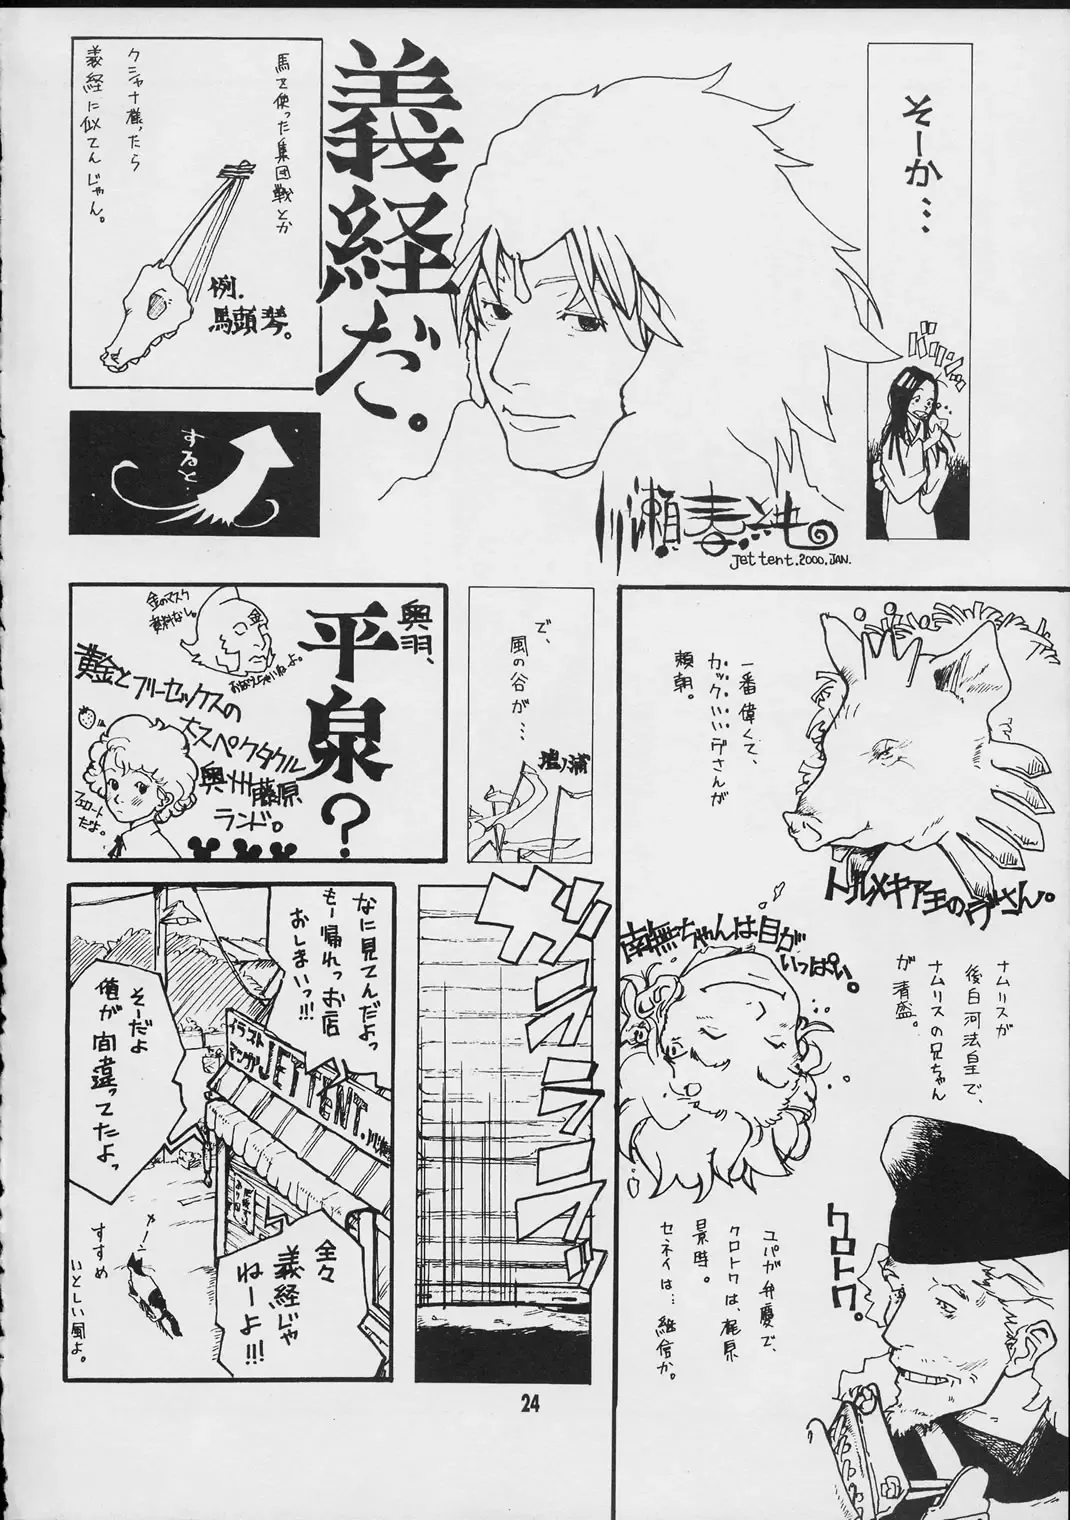 そーか…
バリバリッ
義経だ。
川瀬春純
Jet tent. 2000. JAN.
馬を使った集団戦とか
クシャナ様ったら
義経に似てんじゃん。
例.
馬頭琴。
すると…
一番偉くて、
カックいいヂさんが
頼朝。
トルメキア王のヂさん。
南無ちゃんは目が
いっぱい。
ナムリスが
後白河法皇で、
ナムリスの兄ちゃん
が清盛。
ユパが弁慶で、
クロトワは、梶原
景時。
セネイは…継信か。
クロトワ。
で、
風の谷が…
壇ノ浦
奥羽、
平泉?
金のマスク
黄金とフリーセックスの
大スペクタクル
奥州藤原
ランド。
フェロート
だよ。
ガラララララッ
なに見てんだよっ
もー帰れっお店
おしまいっ!!!
イラスト
マンガ
JET TENT.
そーだよ
俺が間違ってたよっ
全々
義経じゃ
ねーよ!!!
カーン
すすめ
いとしい風よ。
24